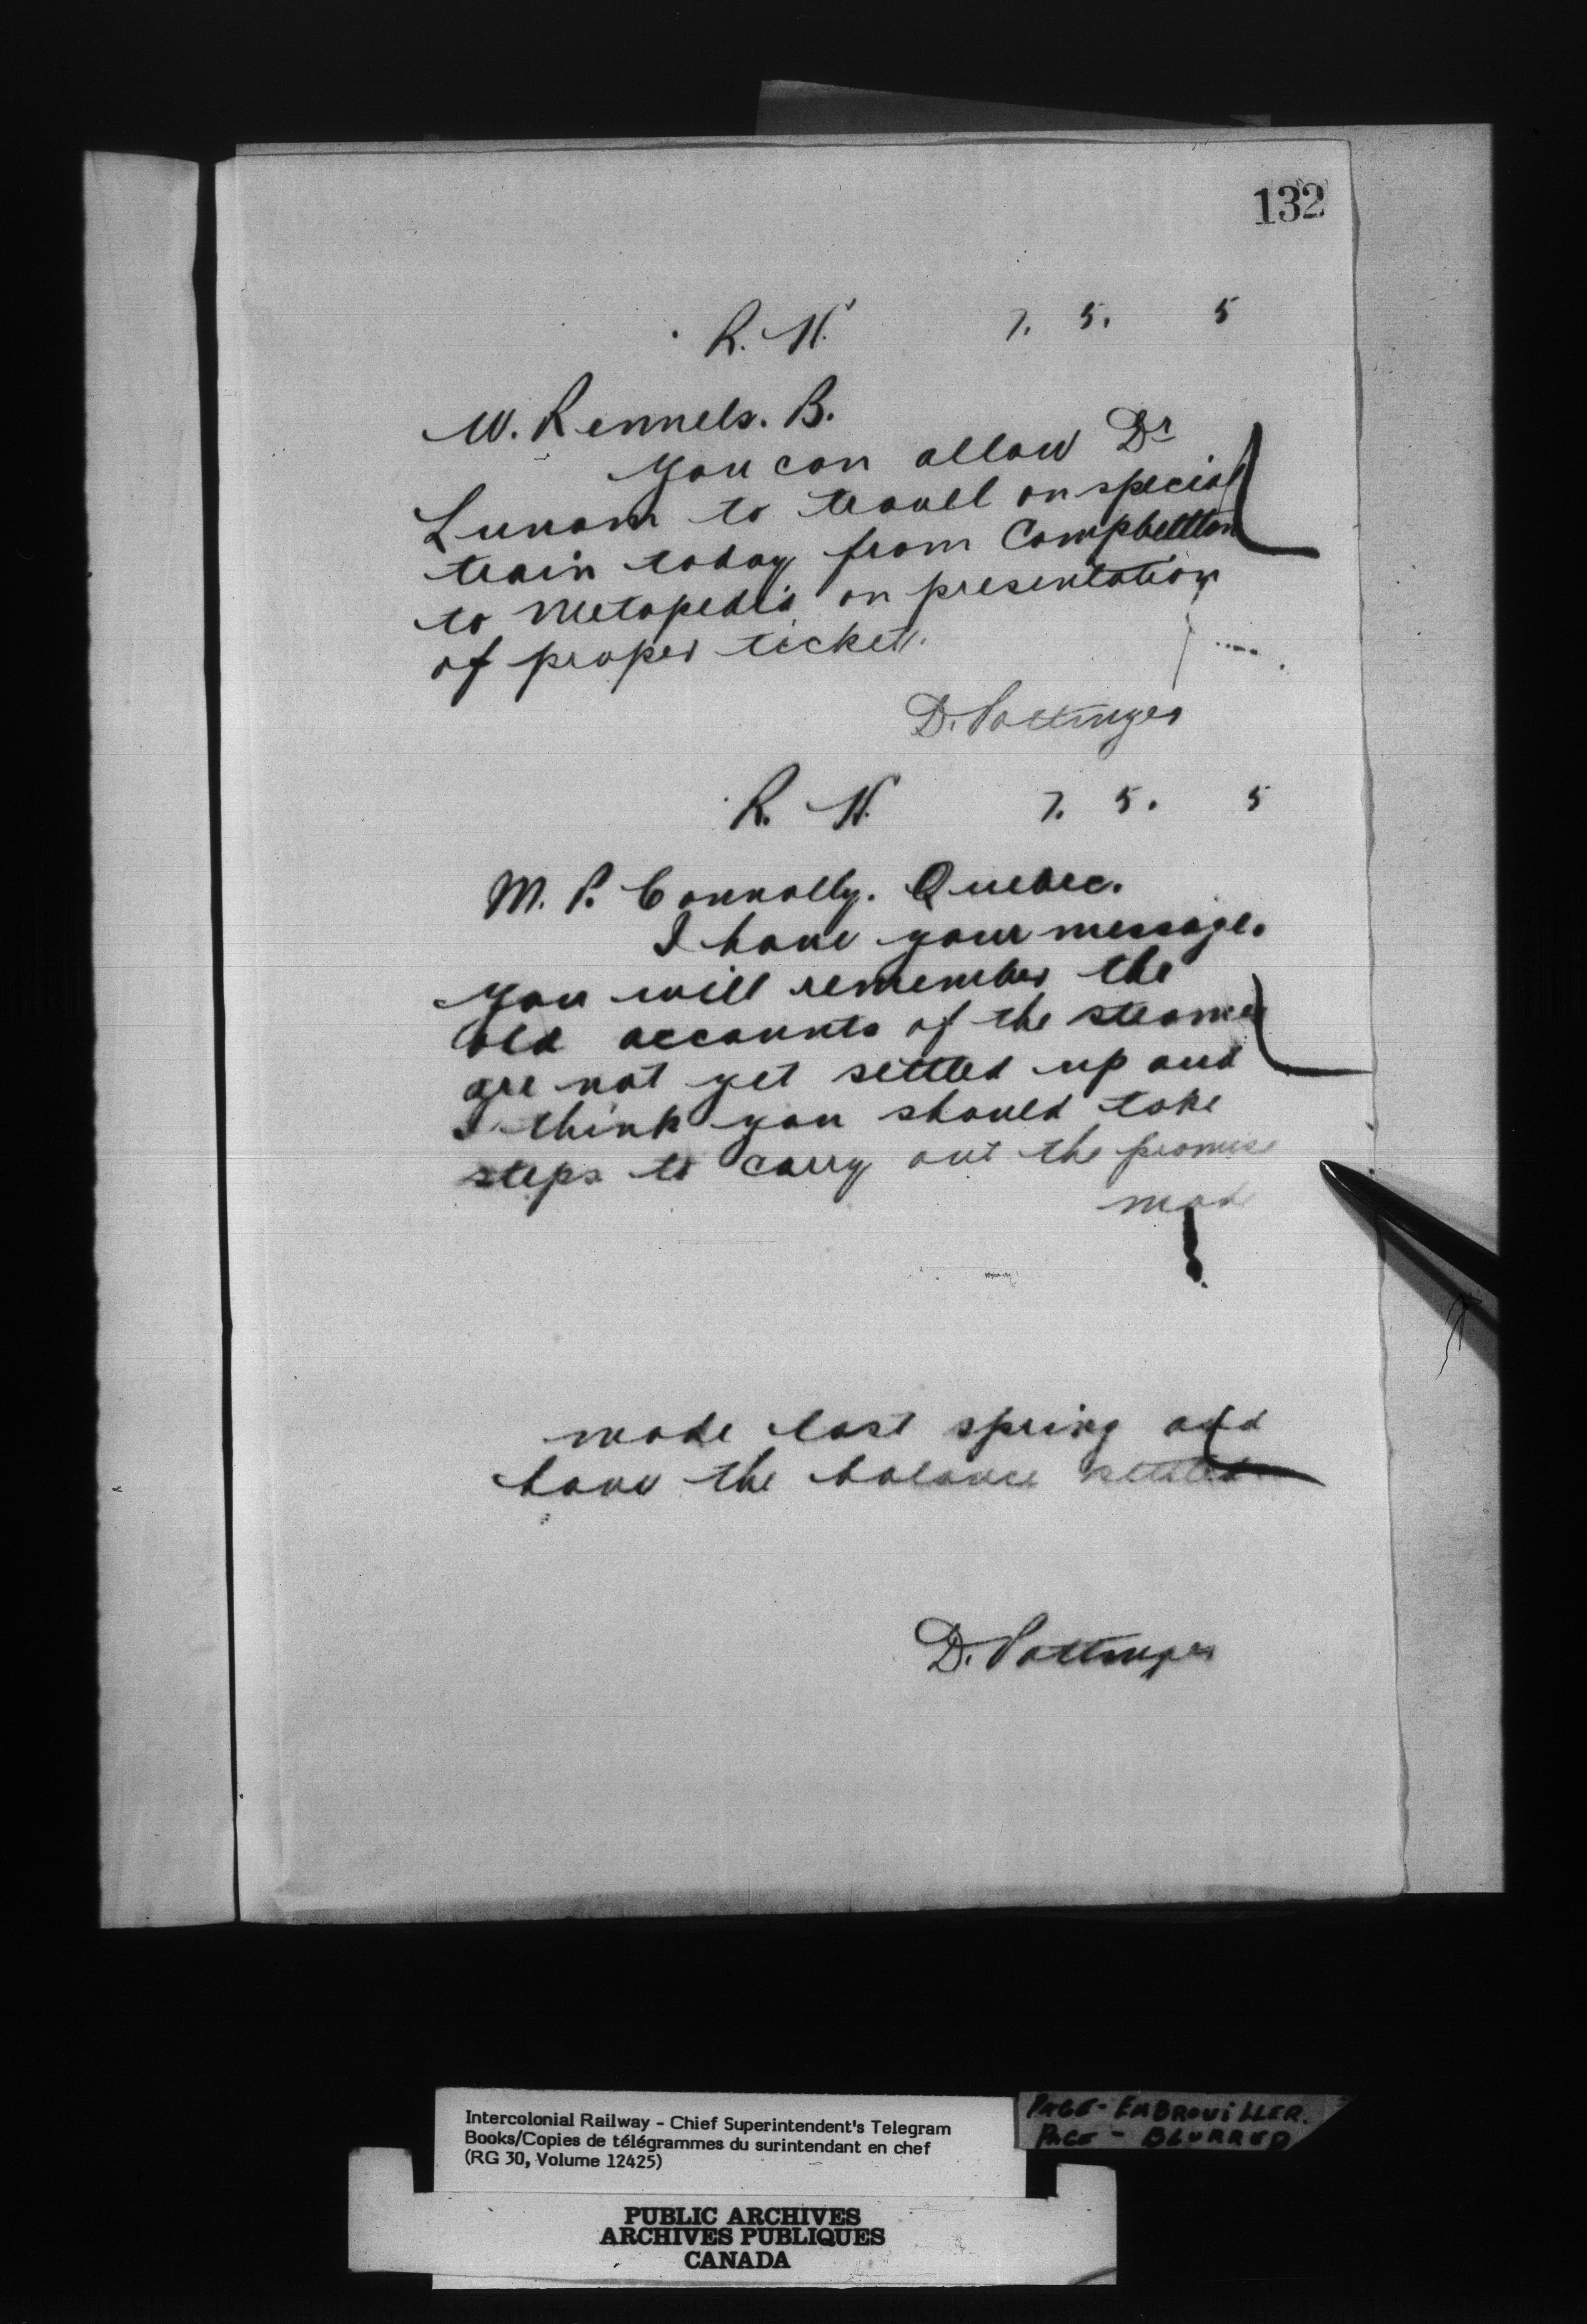 132
R. N. 7. 5. 5
W. Rennels. B.
You can allow Dr
Lunam to travel on special
train today from Campbellton
to Metapedia on presentation
of proper ticket.
D. Pottinger
R. N. 7. 5. 5
M. P. Connolly. Quebec.
I have your message.
You will remember the
old accounts of the steamer
are not yet settled up and
I think you should take
steps to carry out the promise
made
made last spring and
have the balance settled
D. Pottinger
Intercolonial Railway - Chief Superintendent's Telegram
Books/Copies de télégrammes du surintendant en chef
(RG 30, Volume 12425)
PAGE - EMBROUILLER.
PAGE - BLURRED
PUBLIC ARCHIVES
ARCHIVES PUBLIQUES
CANADA